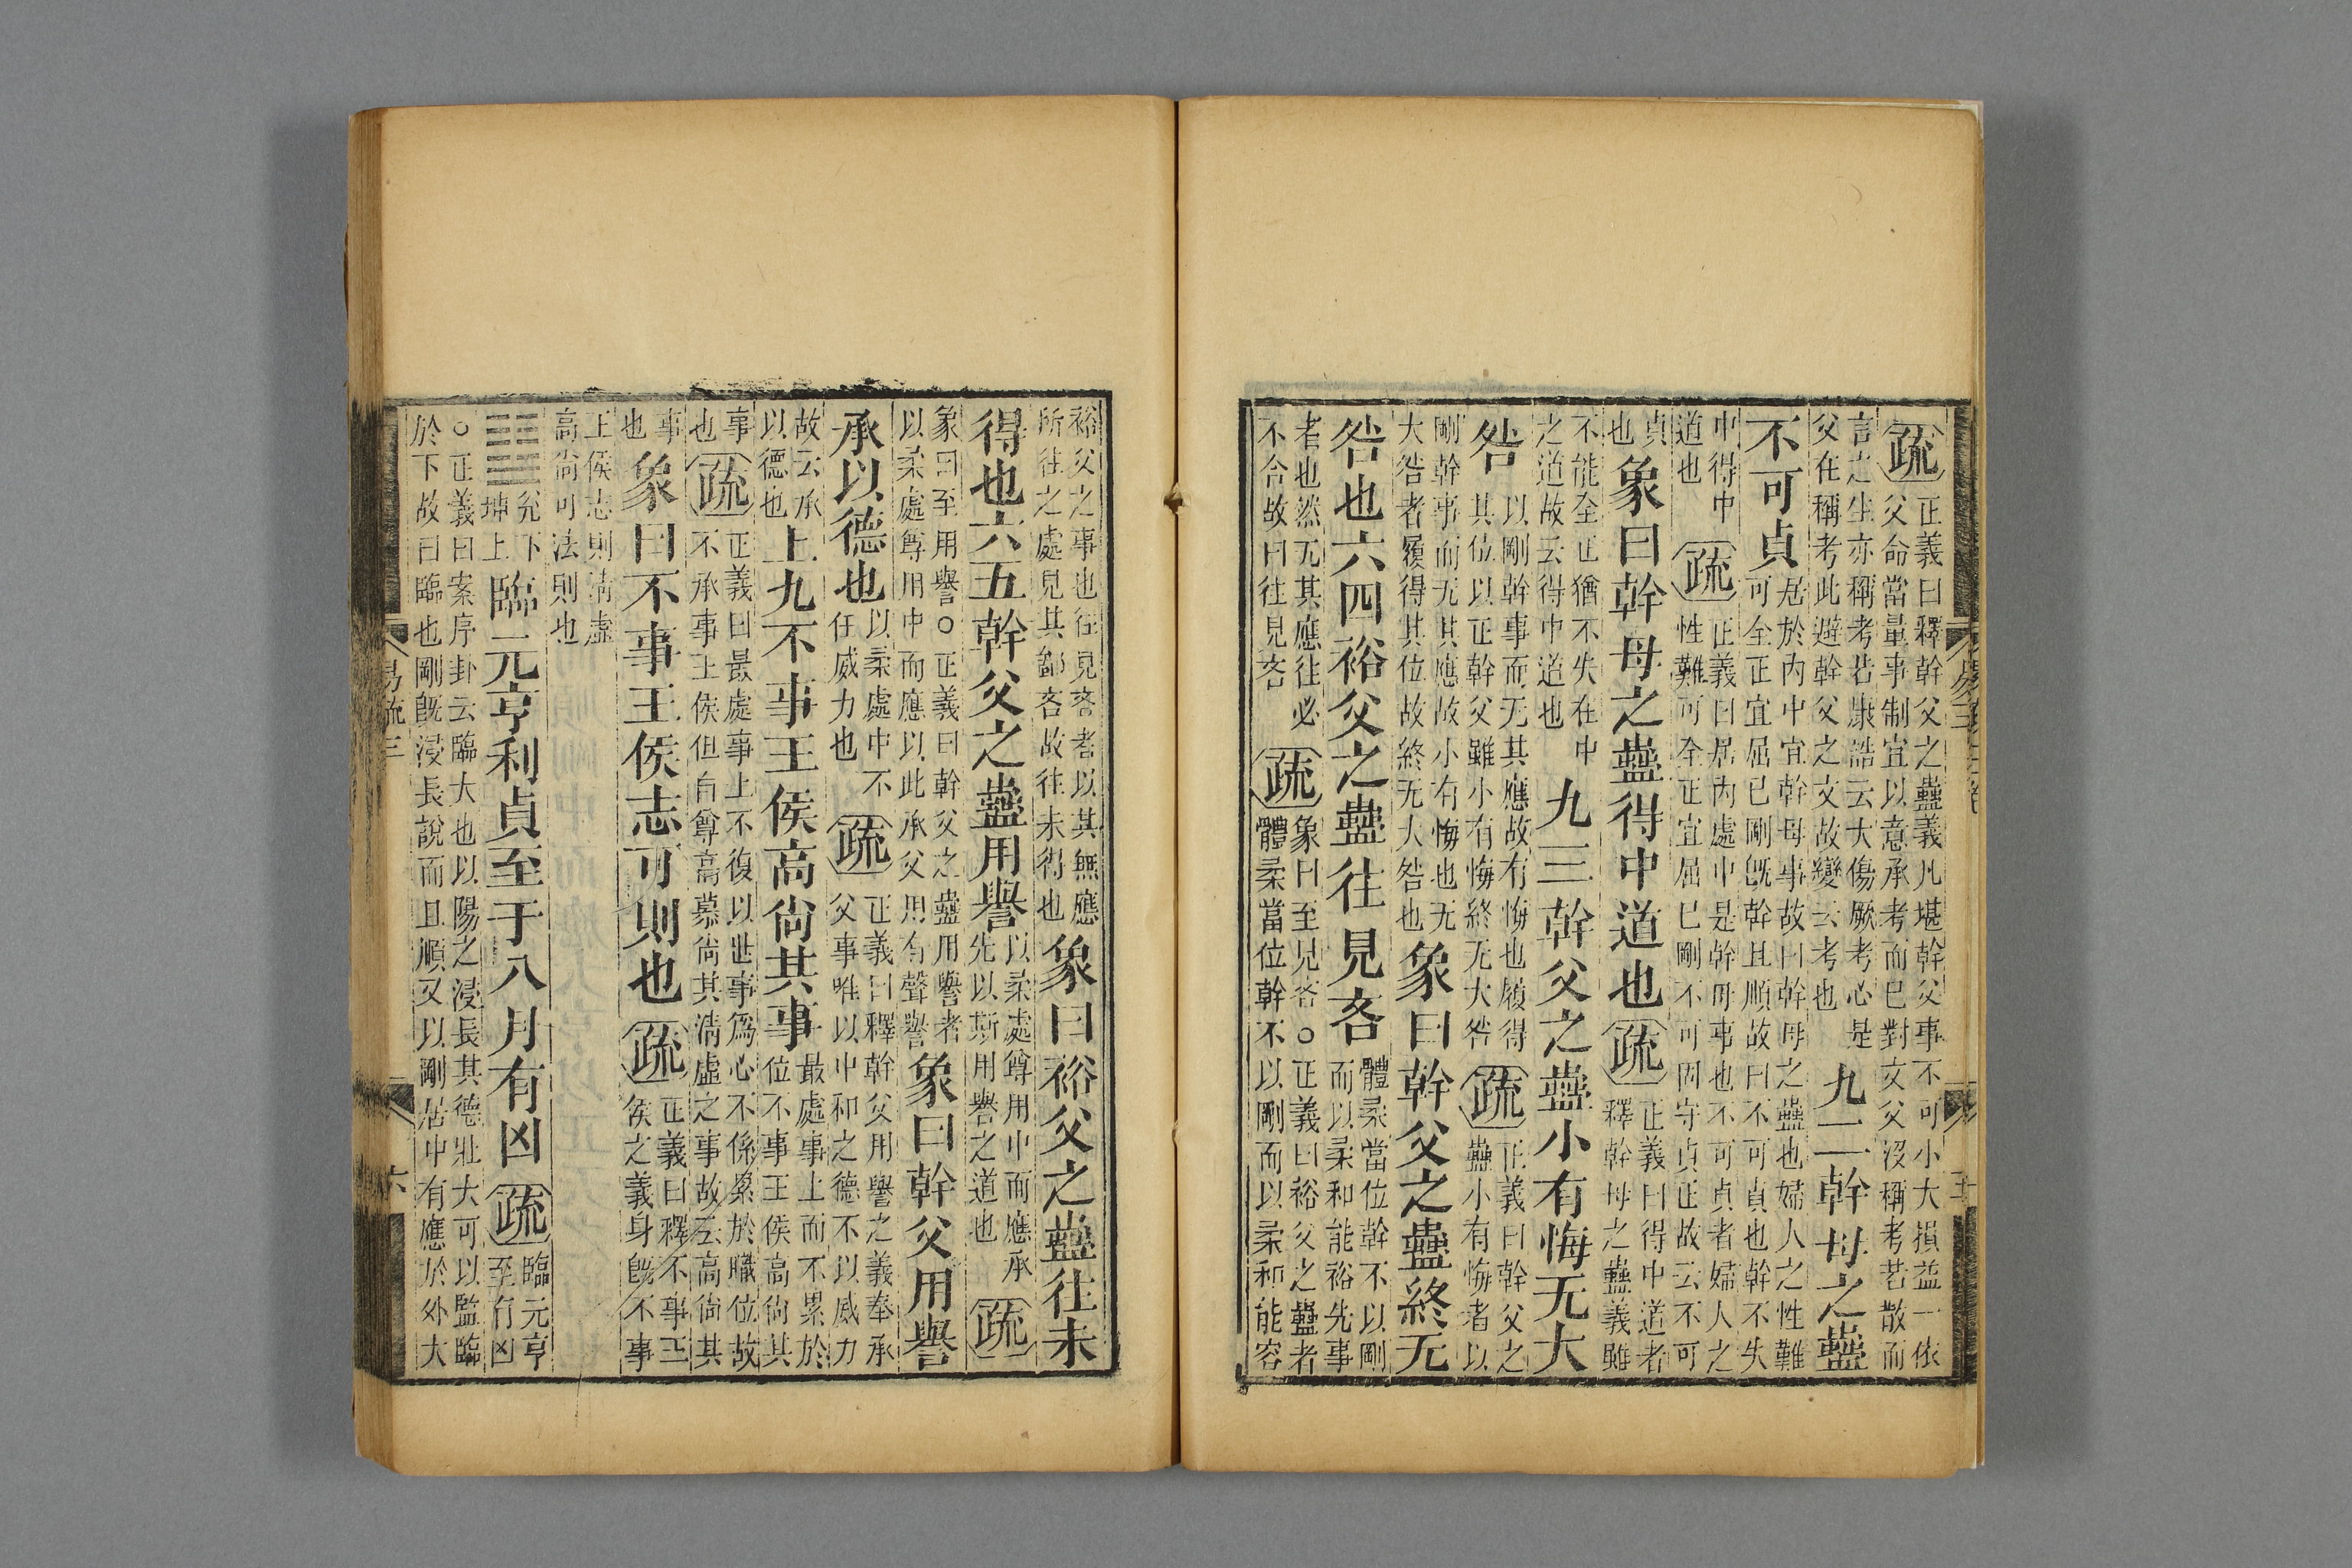 疏正義曰釋幹父之蠱義凡堪幹父事不可小大損益一依
父命當量事制宜以意承考而已對文父沒稱考若散而
言之生亦稱考若康誥云大傷厥考心是
父在稱考此避幹父之文故變云考也九二幹母之蠱
不可貞居於內中宜幹母事故曰幹母之蠱也婦人之性難
可全正宜屈已剛旣幹且順故曰不可貞也幹不失
中得中
道也疏正義曰居內處中是幹母事也不可貞者婦人之
性難可全正宜屈已剛不可固守貞正故云不可
貞
也象曰幹母之蠱得中道也疏正義曰得中道者
釋幹母之蠱義雖
不能全正猶不失在中
之道故云得中道也九三幹父之蠱小有悔无大
咎以剛幹事而无其應故有悔也履得
其位以正幹父雖小有悔終无大咎疏正義曰幹父之
蠱小有悔者以
剛幹事而无其應故小有悔也无
大咎者履得其位故終无大咎也象曰幹父之蠱終无
咎也六四裕父之蠱往見吝體柔當位幹不以剛
而以柔和能裕先事
者也然无其應往必
不合故曰往見吝疏象曰至見吝○正義曰裕父之蠱者
體柔當位幹不以剛而以柔和能容
裕父之事也往見吝者以其無應
所往之處見其鄙吝故往未得也象曰裕父之蠱往未
得也六五幹父之蠱用譽以柔處尊用中而應承
先以斯用譽之道也疏
象曰至用譽○正義曰幹父之蠱用譽者
以柔處尊用中而應以此承父用有聲譽象曰幹父用譽
承以德也以柔處中不
任威力也疏正義曰釋幹父用譽之義奉承
父事唯以中和之德不以威力
故云承
以德也上九不事王侯高尙其事最處事上而不累於
位不事王侯高尙其
事
也疏正義曰最處事上不復以世事爲心不係累於職位故
不承事王侯但自尊高慕尙其淸虛之事故云高尙其
事
也象曰不事王侯志可則也疏正義曰釋不事王
侯之義身旣不事
王侯志則淸虛
高尙可法則也
䷒兌下
坤上臨元亨利貞至于八月有凶疏臨元亨
至有凶
○正義曰案序卦云臨大也以陽之浸長其德壯大可以監臨
於下故曰臨也剛旣浸長說而且順又以剛居中有應於外大
易疏三
六